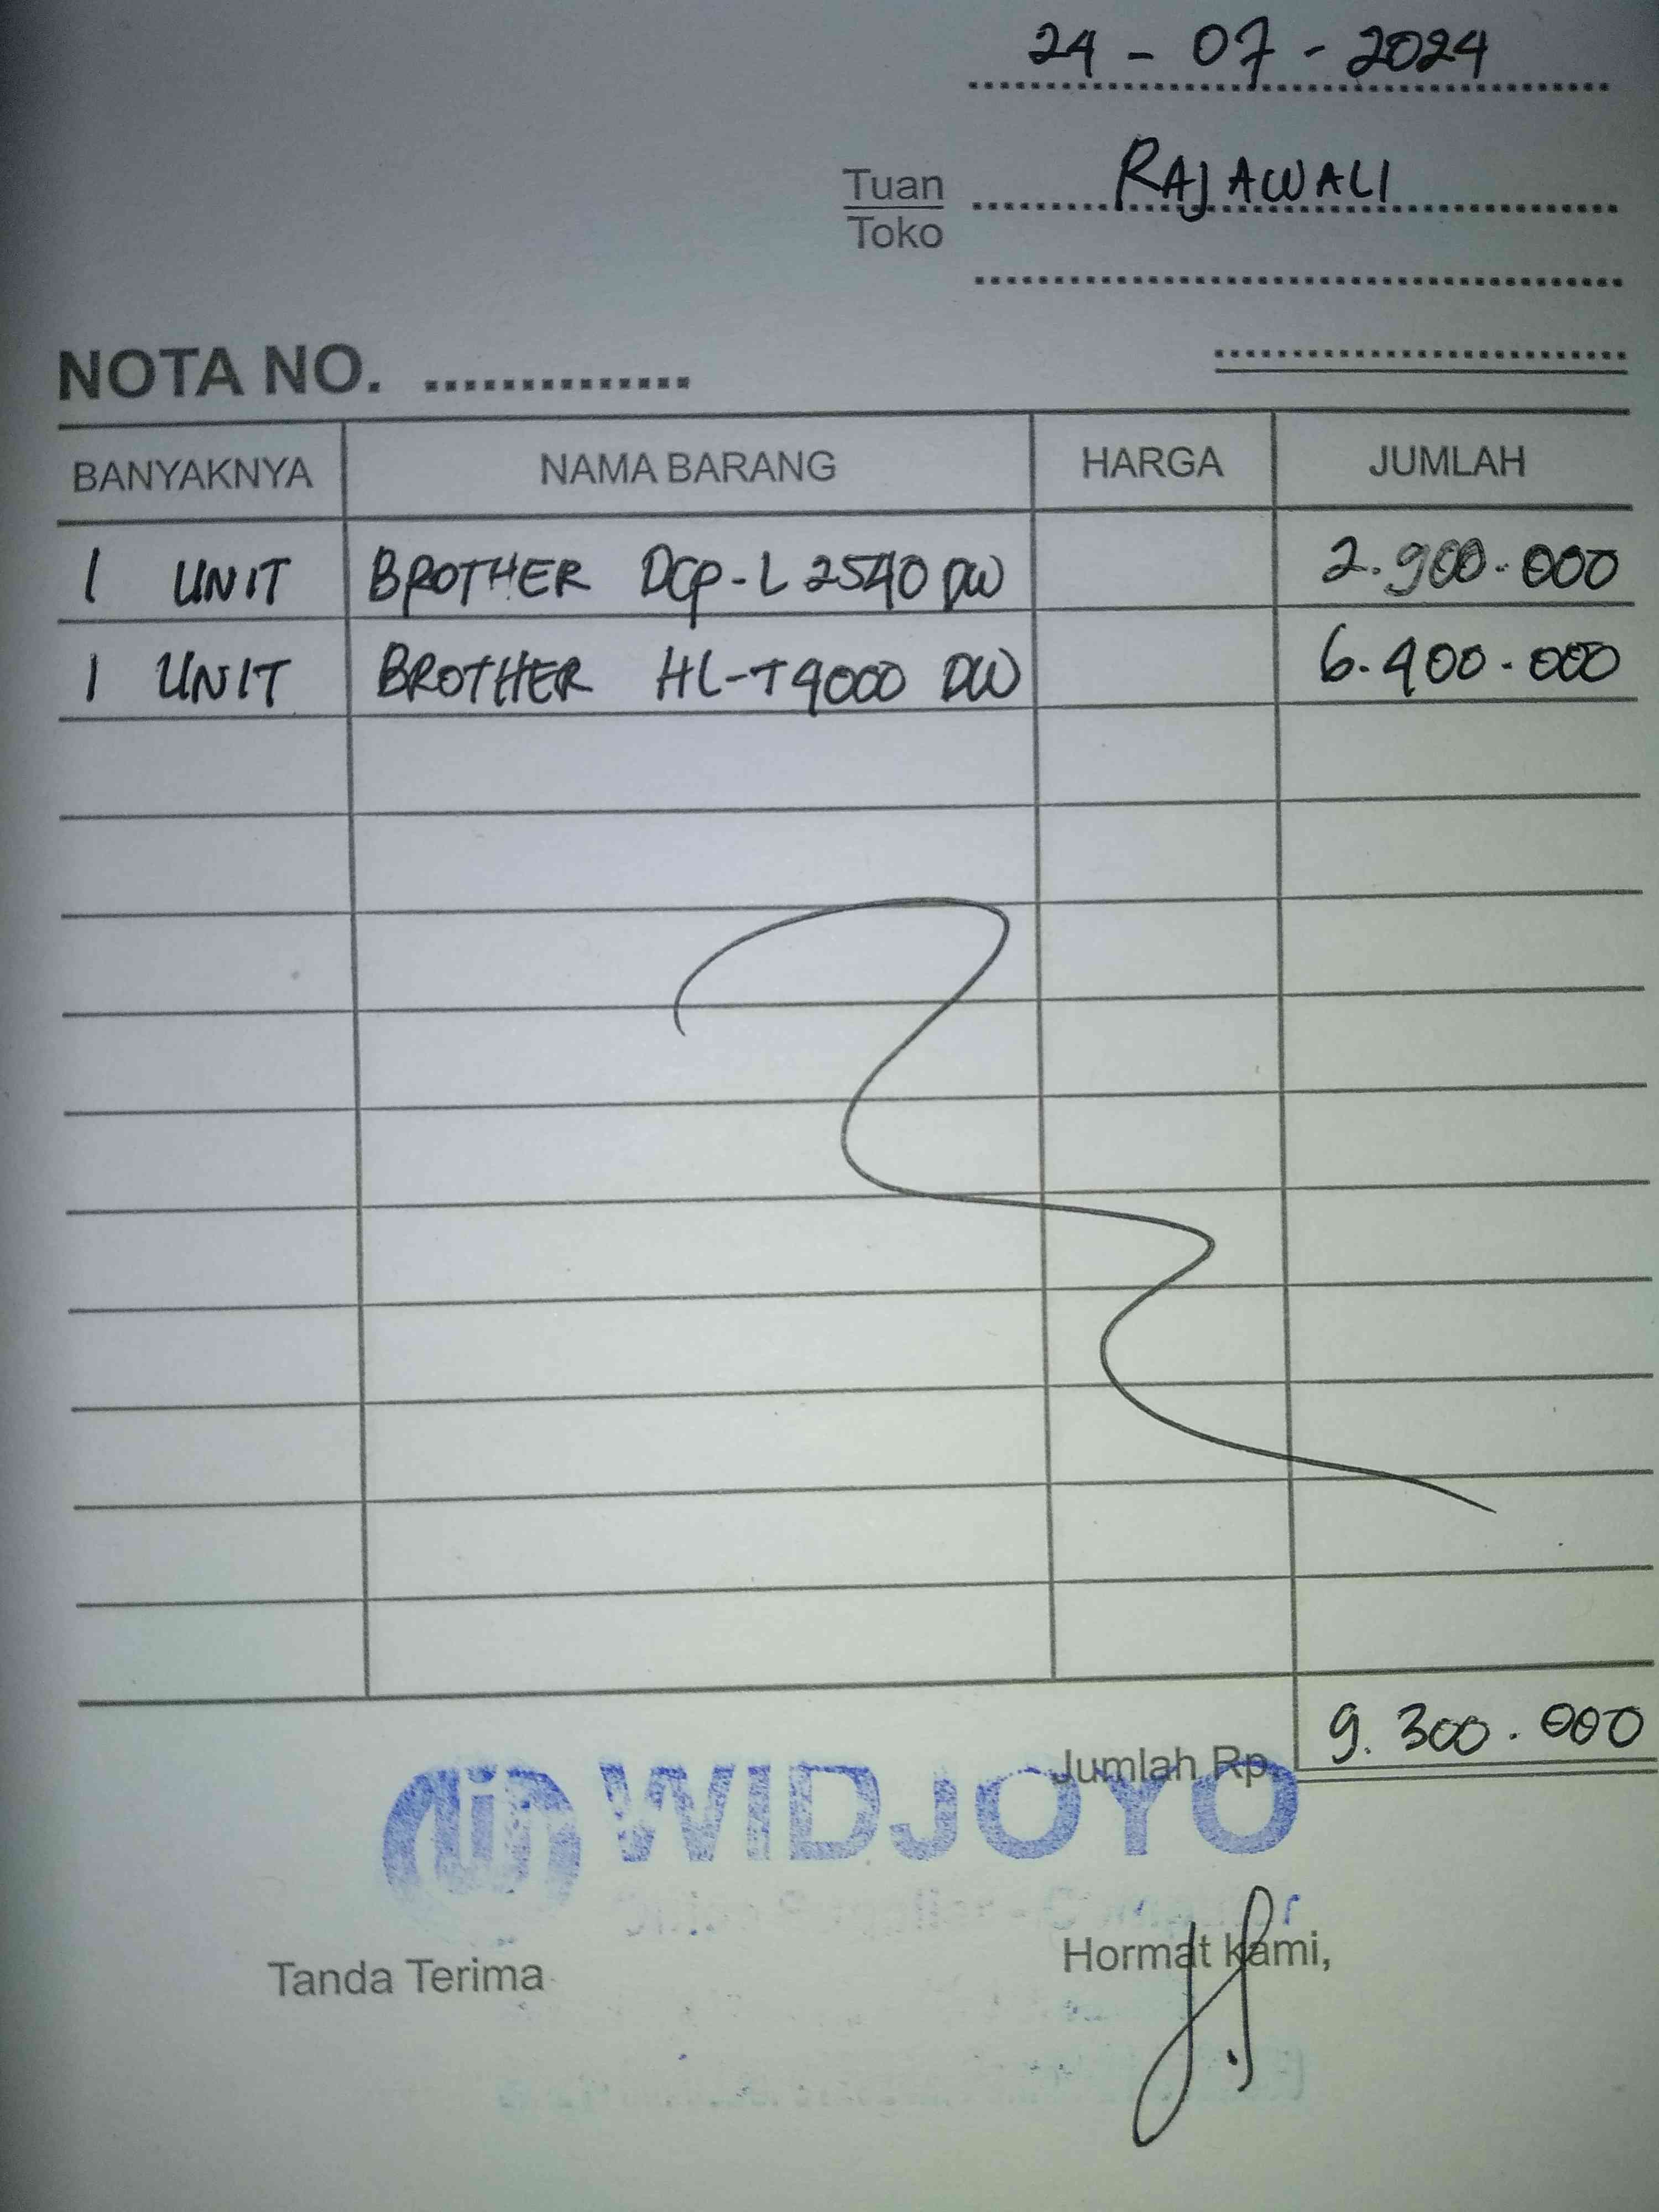 24 - 07 - 2024
Tuan RAJAWALI
Toko
NOTA NO. ..............
BANYAKNYA NAMA BARANG HARGA JUMLAH
1 UNIT BROTHER DCP-L 2540 DW 2.900.000
1 UNIT BROTHER HL-T4000 DW 6.400.000
Jumlah Rp. 9.300.000
WIDJOYO
Tanda Terima Hormat kami,